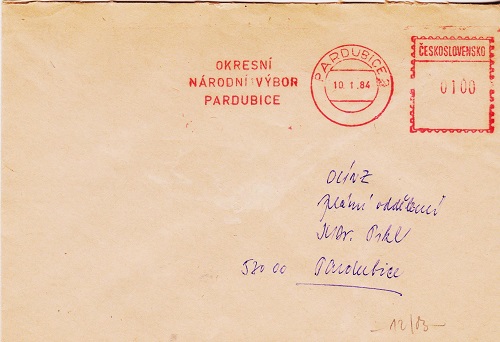 OKRESNÍ
NÁRODNÍ VÝBOR
PARDUBICE
PARDUBICE 2
10.1.84
ČESKOSLOVENSKO
0100
OÚNZ
oddělení
530 00 Pardubice
- 12/83 -